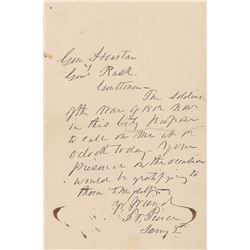 Genl Houston
Genl Rusk.
Gentlemen
The Soldiers
of the War of 1812 now
in this City purpose
to call on me at one
oclock today. Your
presence on this occasion
would be gratifying to
them & myself
Yr Friend
Fr. Pierce
Jany 8